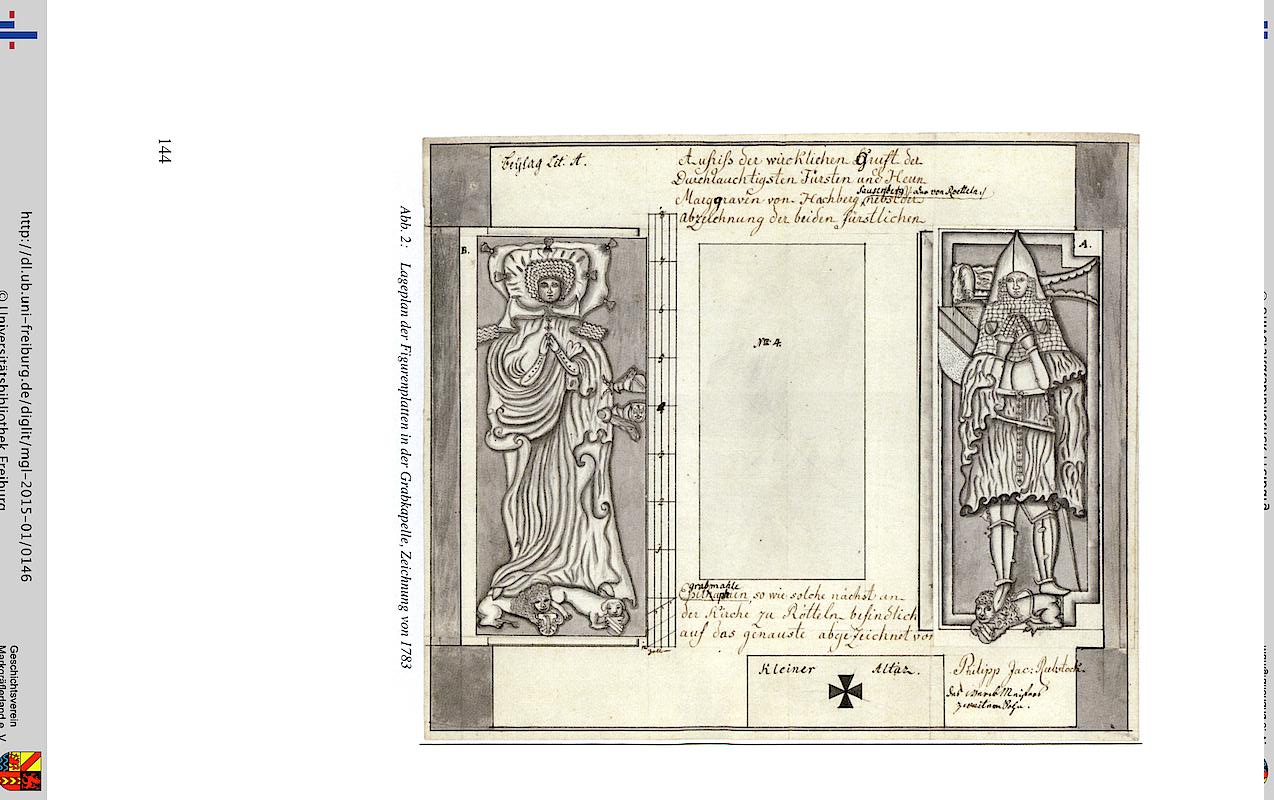 144
http://dl.ub.uni-freiburg.de/diglit/mgl-2015-01/0146
© Universitätsbibliothek Freiburg
Geschichtsverein
Markgräflerland e. V.
Abb. 2: Lageplan der Figurenplatten in der Grabkapelle, Zeichnung von 1783
Beÿlag Lit. A.
Aufriß der wircklichen Gruft der
Durchlauchtigsten Fürsten und Herrn
Marggraven von Hachberg Sausenberg nebst der
abzeichnung der beiden fürstlichen
B.
A.
8
7
6
5
4
3
2
1
Nro. 4.
grabmahle
so wie solche nächst an
der Kirche zu Rötteln befindlich
auf das genauste abgezeichnet von
Kleiner Altar.
Philipp Jac: Ruhstock